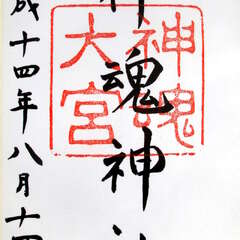 神魂神
神魂
大宮
成十四年八月十四